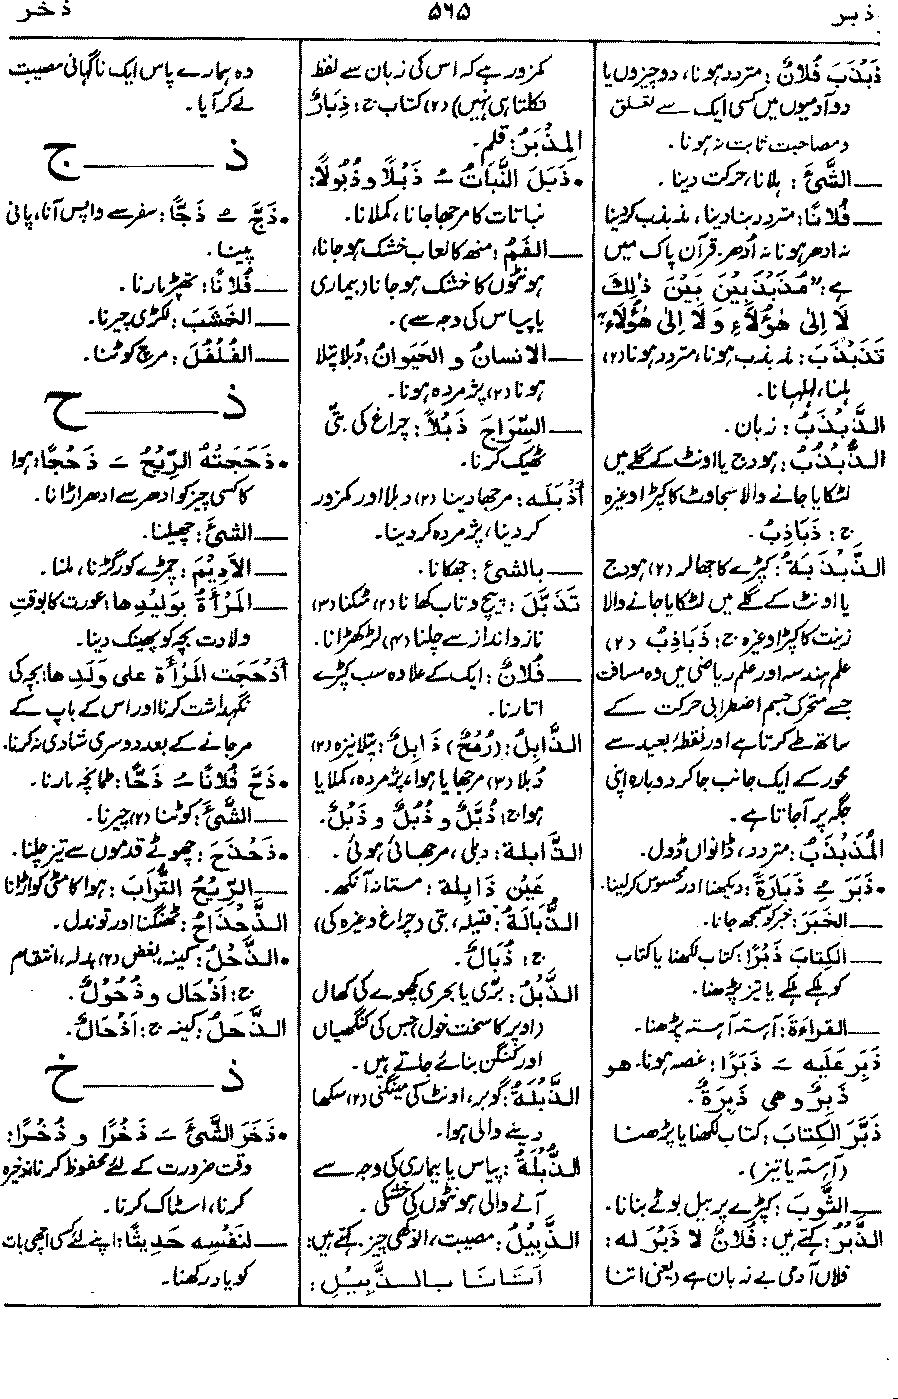 ذبر
۵۶۵
ذخر
ذَبْذَبَ فُلَانٌ: متردد ہونا، دو چیزوں یا
دو آدمیوں میں کسی ایک سے تعلق
و مصاحبت ثابت نہ ہونا۔
ــــ الشَّئَ: ہلانا، حرکت دینا۔
ــــ فُلَانًا: متردد بنا دینا، مذبذب کر دینا
نہ ادھر ہونا نہ اُدھر۔ قرآن پاک میں
ہے: "مُذَبْذَبِيْنَ بَيْنَ ذٰلِكَ
لَا اِلىٰ هٰؤُلَاءِ وَلَا اِلىٰ هٰؤُلَاءِ"
تَذَبْذَبَ: مذبذب ہونا، متردد ہونا (۲)
ہلنا، لہلہانا۔
الذَّبْذَبُ: زبان۔
الذُّبْذُبُ: ہودج یا اونٹ کے گلے میں
لٹکایا جانے والا سجاوٹ کا کپڑا وغیرہ
ج: ذَبَاذِبُ۔
الذَّبْذَبَةُ: کپڑے کا جھالر (۲) ہودج
یا اونٹ کے گلے میں لٹکایا جانے والا
زینت کا کپڑا وغیرہ ج: ذَبَاذِبُ (۲)
علم ہندسہ اور علم ریاضی میں وہ مسافت
جسے متحرک جسم اضطرابی حرکت کے
ساتھ طے کرتا ہے اور نقطۂ بعید سے
محور کے ایک جانب جا کر دوبارہ اپنی
جگہ پر آجاتا ہے۔
المُذَبْذَبُ: متردد، ڈانواں ڈول۔
• ذَبَرَ ـُ ذَبَارَةً: دیکھنا اور محسوس کر لینا۔
ــــ الخَبَرَ: خبر کو سمجھ جانا۔
ــــ الكِتَابَ ذَبْرًا: کتاب لکھنا یا کتاب
کو ہلکے ہلکے یا تیز پڑھنا۔
ــــ القراءةَ: آہستہ آہستہ پڑھنا۔
ذَبِرَ عَلَيه ـَ ذَبَرًا: غصہ ہونا۔ هو
ذَبِرٌ وهي ذَبِرَةٌ۔
ذَبَّرَ الكِتَابَ: کتاب لکھنا یا پڑھنا
(آہستہ یا تیز)۔
ــــ الثَّوبَ: کپڑے پر بیل بوٹے بنانا۔
الذَّبْرُ: کہتے ہیں: فُلَانٌ لَا ذَبْرَ له:
فلاں آدمی بے زبان ہے (یعنی اتنا
کمزور ہے کہ اس کی زبان سے لفظ
نکلتا ہی نہیں) (۲) کتاب ج: ذِبَارٌ
المِذْبَرُ: قلم۔
• ذَبَلَ النَّبَاتُ ـُ ذَبْلًا وذُبُولًا:
نباتات کا مرجھا جانا، کملانا۔
ــــ الفَمُ: منھ کا لعاب خشک ہو جانا،
ہونٹوں کا خشک ہو جانا (بیماری
یا پیاس کی وجہ سے)۔
ــــ الانسانُ و الحَيَوانُ: دُبلا پتلا
ہونا (۲) پژمردہ ہونا۔
ــــ السِّرَاجَ ذَبْلًا: چراغ کی بتّی
ٹھیک کرنا۔
أَذْبَلَه: مرجھا دینا (۲) دبلا اور کمزور
کر دینا، پژمردہ کر دینا۔
ــــ بالشئِ: جھکانا۔
تَذَبَّلَ: پیچ و تاب کھانا (۲) ٹہکنا (۳)
ناز و انداز سے چلنا (۴) لڑکھڑانا۔
ــــ فُلَانٌ: ایک کے علاوہ سب کپڑے
اتارنا۔
الذَّابِلُ: (رُمْحٌ) ذَابِلٌ: پتلا نیزہ (۲)
دُبلا (۳) مرجھایا ہوا، پژمردہ، کملایا
ہوا ج: ذُبَّلٌ و ذُبُلٌ و ذُبْلٌ۔
الذَّابلة: دبلی، مرجھائی ہوئی۔
عَيْنٌ ذَابِلة: مستانہ آنکھ۔
الذُّبَالَةُ: فتیلہ، بتی (چراغ وغیرہ کی)
ج: ذُبَالٌ۔
الذَّبْلُ: برّی یا بحری کچھوے کی کھال
(اوپر کا سخت خول) جس کی کنگھیاں
اور کنگن بنائے جاتے ہیں۔
الذَّبْلَةُ: گوبر، اونٹ کی مینگنی (۲) سکھا
دینے والی ہوا۔
الذُّبْلَةُ: پیاس یا بیماری کی وجہ سے
آنے والی ہونٹوں کی خشکی۔
الذَّبِيْلُ: مصیبت، انوکھی چیز۔ کہتے ہیں:
أَتَانَا بالذَّبِيْلِ:
وہ ہمارے پاس ایک ناگہانی مصیبت
لے کر آیا۔
ذ ــــــــ ج
• ذَجَّ ـُ ذَجًّا: سفر سے واپس آنا، پانی
پینا۔
ــــ فُلَانًا: تھپڑ مارنا۔
ــــ الخَشَبَ: لکڑی چیرنا۔
ــــ الفُلْفُلَ: مرچ کوٹنا۔
ذ ــــــــ ح
• ذَحَجَتْهُ الرِّيْحُ ـَ ذَحْجًا: ہوا
کا کسی چیز کو ادھر سے ادھر اڑانا۔
ــــ الشئَ: چھیلنا۔
ــــ الأدِيْمَ: چمڑے کو رگڑنا، ملنا۔
ــــ المَرْأَةُ بِوَلِيْدِها: عورت کا بوقتِ
ولادت بچہ کو پھینک دینا۔
أذْحَجَت المَرْأَة على وَلَدِ ها: بچے کی
نگہداشت کرنا اور اس کے باپ کے
مر جانے کے بعد دوسری شادی نہ کرنا۔
• ذَحَّ فُلَانًا ـُ ذَحًّا: طمانچہ مارنا۔
ــــ الشَّئَ: کوٹنا (۲) چیرنا۔
• ذَحْذَحَ: چھوٹے قدموں سے تیز چلنا۔
ــــ الرِّيْحُ التُّرابَ: ہوا کا مٹی کو اڑانا
الذَّحْذَاحُ: ٹھگنا اور توندل۔
• الذَّحْلُ: کینہ، بغض (۲) بدلہ، انتقام
ج: أَذْحَال وذُحُوْلٌ۔
الذَّحَلُ: کینہ ج: أَذْحَالٌ۔
ذ ــــــــ خ
• ذَخَرَ الشَّئَ ـَ ذَخْرًا و ذُخْرًا:
وقت ضرورت کے لئے محفوظ کرنا، ذخیرہ
کرنا، اسٹاک کرنا۔
ــــ لنَفْسِه حَدِيثًا: اپنے لئے کسی اچھی بات
کو یاد رکھنا۔